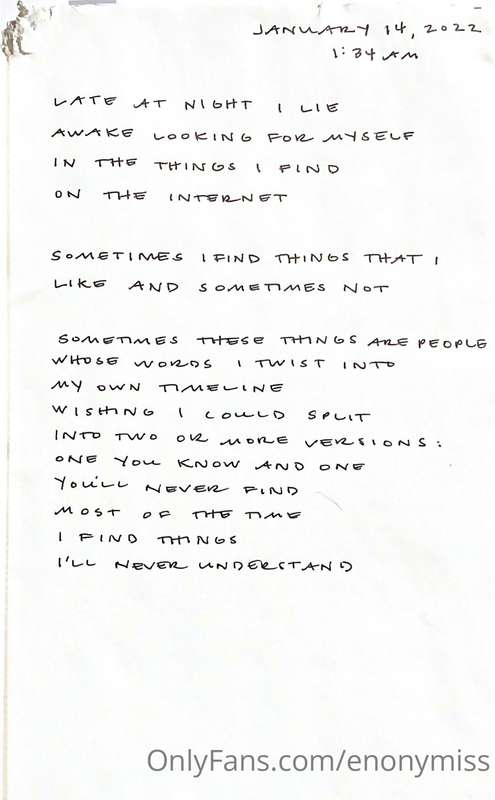 JANUARY 14, 2022
1:34 AM
LATE AT NIGHT I LIE
AWAKE LOOKING FOR MYSELF
IN THE THINGS I FIND
ON THE INTERNET
SOMETIMES I FIND THINGS THAT I
LIKE AND SOMETIMES NOT
SOMETIMES THESE THINGS ARE PEOPLE
WHOSE WORDS I TWIST INTO
MY OWN TIMELINE
WISHING I COULD SPLIT
INTO TWO OR MORE VERSIONS:
ONE YOU KNOW AND ONE
YOU'LL NEVER FIND
MOST OF THE TIME
I FIND THINGS
I'LL NEVER UNDERSTAND
OnlyFans.com/enonymiss